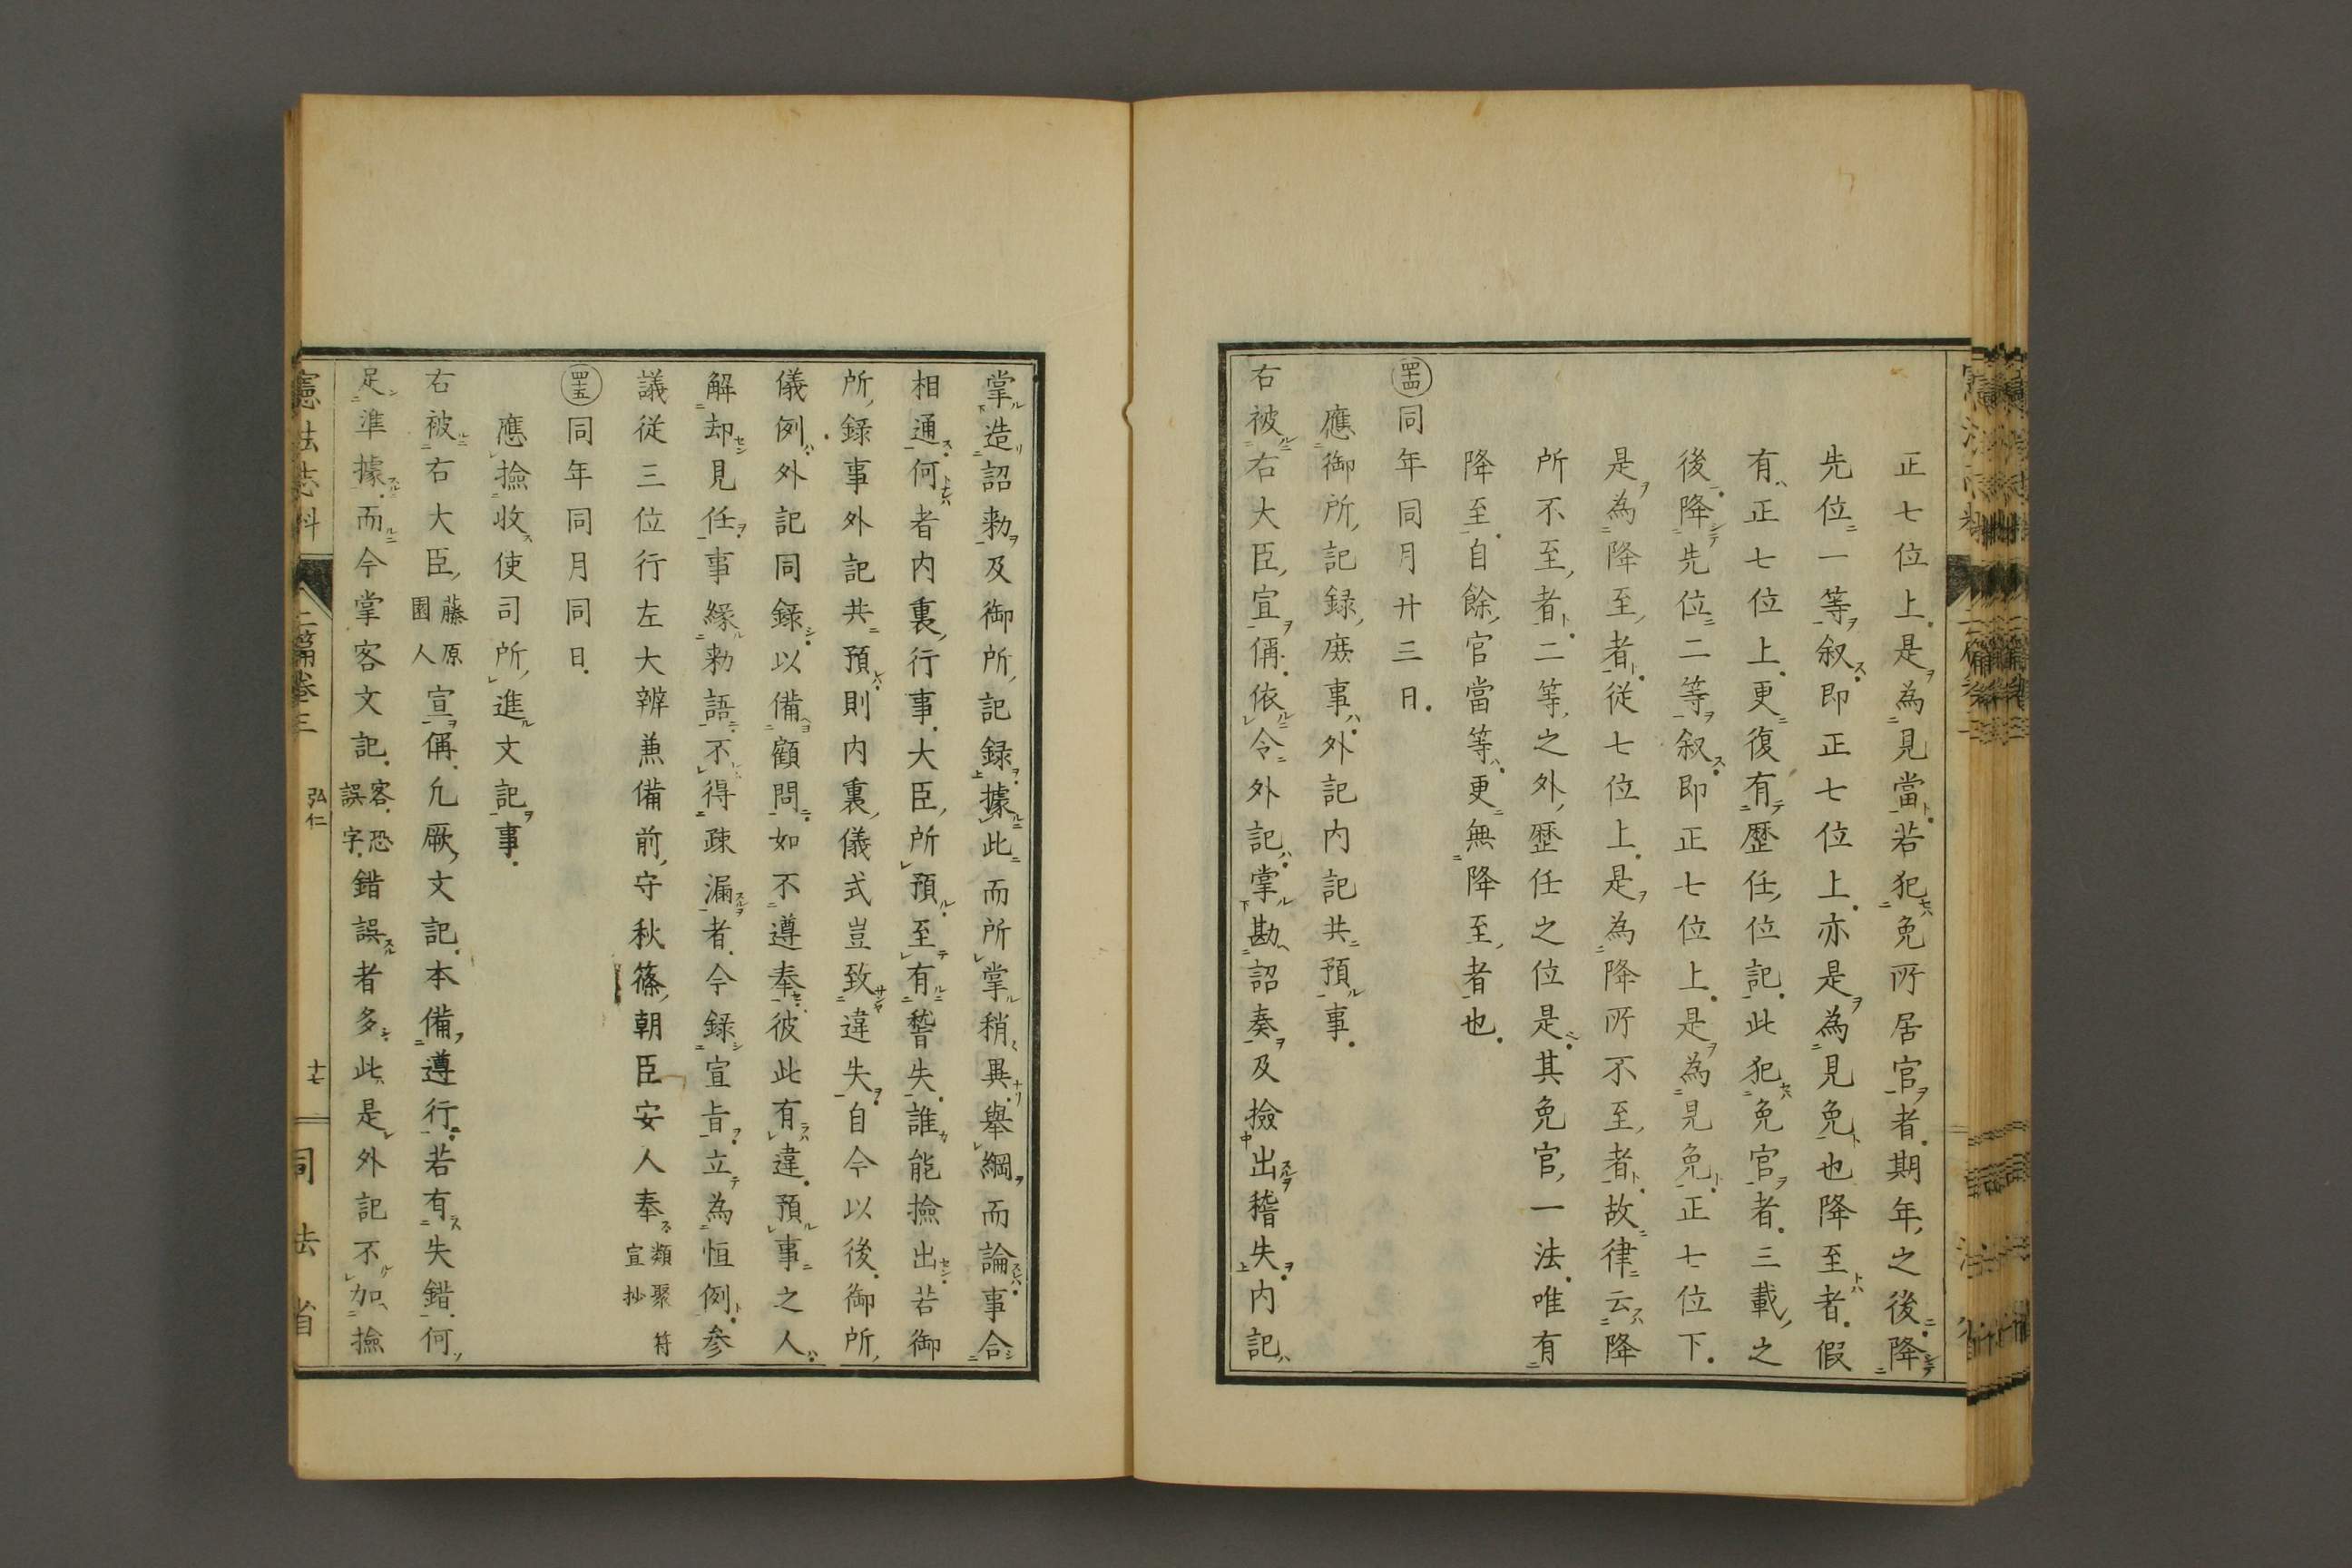 正七位上是為見當若犯免所居官者期年之後降
先位一等叙即正七位上亦是為見免也降至者假
有正七位上更復有歷任位記此犯免官者三載之
後降先位二等叙即正七位上是為見免正七位下
是為降至者從七位上是為降所不至者故律云降
所不至者二等之外歷任之位是其免官一法唯有
降至自餘官當等更無降至者也
四十四同年同月廿三日
應御所記録庶事外記内記共預事
右被右大臣宣偁依令外記掌勘詔奏及撿出稽失内記
掌造詔勅及御所記録據此而所掌稍異舉綱而論事合
相通何者内裏行事大臣所預至有稽失誰能撿出若御
所録事外記共預則内裏儀式豈致違失自今以後御所
儀例外記同録以備顧問如不遵奉彼此有違預事之人
解却見任事縁勅語不得疎漏者今録宣旨立為恒例参
議従三位行左大辨兼備前守秋篠朝臣安人奉類聚符宣抄
四十五同年同月同日
應撿收使司所進文記事
右被右大臣藤原園人宣偁凢厥文記本備遵行若有失錯何
足準據而今掌客文記客恐誤字錯誤者多此是外記不加撿
憲法志料 二篇卷三 弘仁 十七 司法省